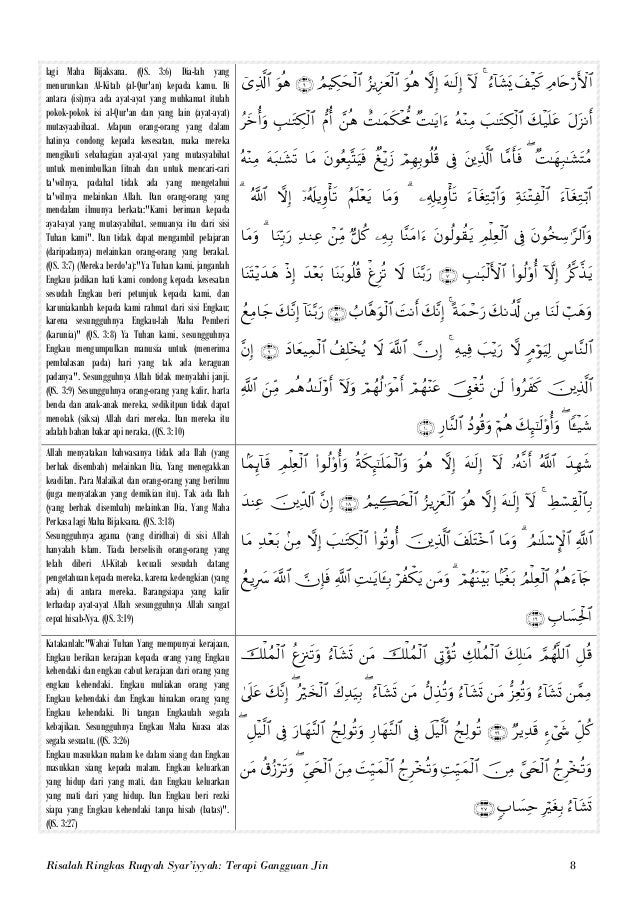 lagi Maha Bijaksana. (QS. 3:6) Dia-lah yang
menurunkan Al-Kitab (al-Qur'an) kepada kamu. Di
antara (isi)nya ada ayat-ayat yang muhkamat itulah
pokok-pokok isi al-Qur'an dan yang lain (ayat-ayat)
mutasyaabihaat. Adapun orang-orang yang dalam
hatinya condong kepada kesesatan, maka mereka
mengikuti sebahagian ayat-ayat yang mutasyabihat
untuk menimbulkan fitnah dan untuk mencari-cari
ta'wilnya, padahal tidak ada yang mengetahui
ta'wilnya melainkan Allah. Dan orang-orang yang
mendalam ilmunya berkata:"Kami beriman kepada
ayat-ayat yang mutasyabihat, semuanya itu dari sisi
Tuhan kami". Dan tidak dapat mengambil pelajaran
(daripadanya) melainkan orang-orang yang berakal.
(QS. 3:7) (Mereka berdo'a):"Ya Tuhan kami, janganlah
Engkau jadikan hati kami condong kepada kesesatan
sesudah Engkau beri petunjuk kepada kami, dan
karuniakanlah kepada kami rahmat dari sisi Engkau;
karena sesungguhnya Engkau-lah Maha Pemberi
(karunia)" (QS. 3:8) Ya Tuhan kami, sesungguhnya
Engkau mengumpulkan manusia untuk (menerima
pembalasan pada) hari yang tak ada keraguan
padanya". Sesungguhnya Allah tidak menyalahi janji.
(QS. 3:9) Sesungguhnya orang-orang yang kafir, harta
benda dan anak-anak mereka, sedikitpun tidak dapat
menolak (siksa) Allah dari mereka. Dan mereka itu
adalah bahan bakar api neraka, (QS. 3:10)
ٱلْأَرْحَامِ كَيْفَ يَشَآءُ ۚ لَآ إِلَٰهَ إِلَّا هُوَ ٱلْعَزِيزُ ٱلْحَكِيمُ ﴿٦﴾ هُوَ ٱلَّذِىٓ
أَنزَلَ عَلَيْكَ ٱلْكِتَٰبَ مِنْهُ ءَايَٰتٌ مُّحْكَمَٰتٌ هُنَّ أُمُّ ٱلْكِتَٰبِ وَأُخَرُ
مُتَشَٰبِهَٰتٌ ۖ فَأَمَّا ٱلَّذِينَ فِى قُلُوبِهِمْ زَيْغٌ فَيَتَّبِعُونَ مَا تَشَٰبَهَ مِنْهُ
ٱبْتِغَآءَ ٱلْفِتْنَةِ وَٱبْتِغَآءَ تَأْوِيلِهِۦ ۗ وَمَا يَعْلَمُ تَأْوِيلَهُۥٓ إِلَّا ٱللَّهُ ۗ
وَٱلرَّٰسِخُونَ فِى ٱلْعِلْمِ يَقُولُونَ ءَامَنَّا بِهِۦ كُلٌّ مِّنْ عِندِ رَبِّنَا ۗ وَمَا
يَذَّكَّرُ إِلَّآ أُو۟لُوا۟ ٱلْأَلْبَٰبِ ﴿٧﴾ رَبَّنَا لَا تُزِغْ قُلُوبَنَا بَعْدَ إِذْ هَدَيْتَنَا
وَهَبْ لَنَا مِن لَّدُنكَ رَحْمَةً ۚ إِنَّكَ أَنتَ ٱلْوَهَّابُ ﴿٨﴾ رَبَّنَآ إِنَّكَ جَامِعُ
ٱلنَّاسِ لِيَوْمٍ لَّا رَيْبَ فِيهِ ۚ إِنَّ ٱللَّهَ لَا يُخْلِفُ ٱلْمِيعَادَ ﴿٩﴾ إِنَّ
ٱلَّذِينَ كَفَرُوا۟ لَن تُغْنِىَ عَنْهُمْ أَمْوَٰلُهُمْ وَلَآ أَوْلَٰدُهُم مِّنَ ٱللَّهِ
شَيْـًٔا ۖ وَأُو۟لَٰٓئِكَ هُمْ وَقُودُ ٱلنَّارِ ﴿١٠﴾
Allah menyatakan bahwasanya tidak ada Ilah (yang
berhak disembah) melainkan Dia, Yang menegakkan
keadilan. Para Malaikat dan orang-orang yang berilmu
(juga menyatakan yang demikian itu). Tak ada Ilah
(yang berhak disembah) melainkan Dia, Yang Maha
Perkasa lagi Maha Bijaksana. (QS. 3:18)
Sesungguhnya agama (yang diridhai) di sisi Allah
hanyalah Islam. Tiada berselisih orang-orang yang
telah diberi Al-Kitab kecuali sesudah datang
pengetahuan kepada mereka, karena kedengkian (yang
ada) di antara mereka. Barangsiapa yang kafir
terhadap ayat-ayat Allah sesungguhnya Allah sangat
cepat hisab-Nya. (QS. 3:19)
شَهِدَ ٱللَّهُ أَنَّهُۥ لَآ إِلَٰهَ إِلَّا هُوَ وَٱلْمَلَٰٓئِكَةُ وَأُو۟لُوا۟ ٱلْعِلْمِ قَآئِمًۢا
بِٱلْقِسْطِ ۚ لَآ إِلَٰهَ إِلَّا هُوَ ٱلْعَزِيزُ ٱلْحَكِيمُ ﴿١٨﴾ إِنَّ ٱلدِّينَ عِندَ
ٱللَّهِ ٱلْإِسْلَٰمُ ۗ وَمَا ٱخْتَلَفَ ٱلَّذِينَ أُوتُوا۟ ٱلْكِتَٰبَ إِلَّا مِنۢ بَعْدِ مَا
جَآءَهُمُ ٱلْعِلْمُ بَغْيًۢا بَيْنَهُمْ ۗ وَمَن يَكْفُرْ بِـَٔايَٰتِ ٱللَّهِ فَإِنَّ ٱللَّهَ سَرِيعُ
ٱلْحِسَابِ ﴿١٩﴾
Katakanlah:"Wahai Tuhan Yang mempunyai kerajaan,
Engkau berikan kerajaan kepada orang yang Engkau
kehendaki dan engkau cabut kerajaan dari orang yang
engkau kehendaki. Engkau muliakan orang yang
Engkau kehendaki dan Engkau hinakan orang yang
Engkau kehendaki. Di tangan Engkaulah segala
kebajikan. Sesungguhnya Engkau Maha Kuasa atas
segala sesuatu. (QS. 3:26)
Engkau masukkan malam ke dalam siang dan Engkau
masukkan siang kepada malam. Engkau keluarkan
yang hidup dari yang mati, dan Engkau keluarkan
yang mati dari yang hidup. Dan Engkau beri rezki
siapa yang Engkau kehendaki tanpa hisab (batas)".
(QS. 3:27)
قُلِ ٱللَّهُمَّ مَٰلِكَ ٱلْمُلْكِ تُؤْتِى ٱلْمُلْكَ مَن تَشَآءُ وَتَنزِعُ ٱلْمُلْكَ
مِمَّن تَشَآءُ وَتُعِزُّ مَن تَشَآءُ وَتُذِلُّ مَن تَشَآءُ ۖ بِيَدِكَ ٱلْخَيْرُ ۖ إِنَّكَ عَلَىٰ
كُلِّ شَىْءٍ قَدِيرٌ ﴿٢٦﴾ تُولِجُ ٱلَّيْلَ فِى ٱلنَّهَارِ وَتُولِجُ ٱلنَّهَارَ فِى ٱلَّيْلِ ۖ
وَتُخْرِجُ ٱلْحَىَّ مِنَ ٱلْمَيِّتِ وَتُخْرِجُ ٱلْمَيِّتَ مِنَ ٱلْحَىِّ ۖ وَتَرْزُقُ مَن
تَشَآءُ بِغَيْرِ حِسَابٍ ﴿٢٧﴾
Risalah Ringkas Ruqyah Syar'iyyah: Terapi Gangguan Jin 8